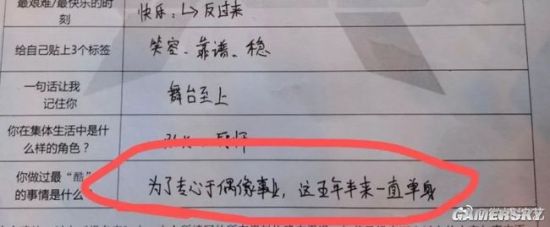 最艰难/最快乐的时刻
快乐：↳反过来
给自己贴上3个标签
笑容、靠谱、稳
一句话让我
记住你
舞台至上
你在集体生活中是什
么样的角色？
你做过最“酷”
的事情是什么
为了专心于偶像事业，这五年半来一直单身
GAMERSKY